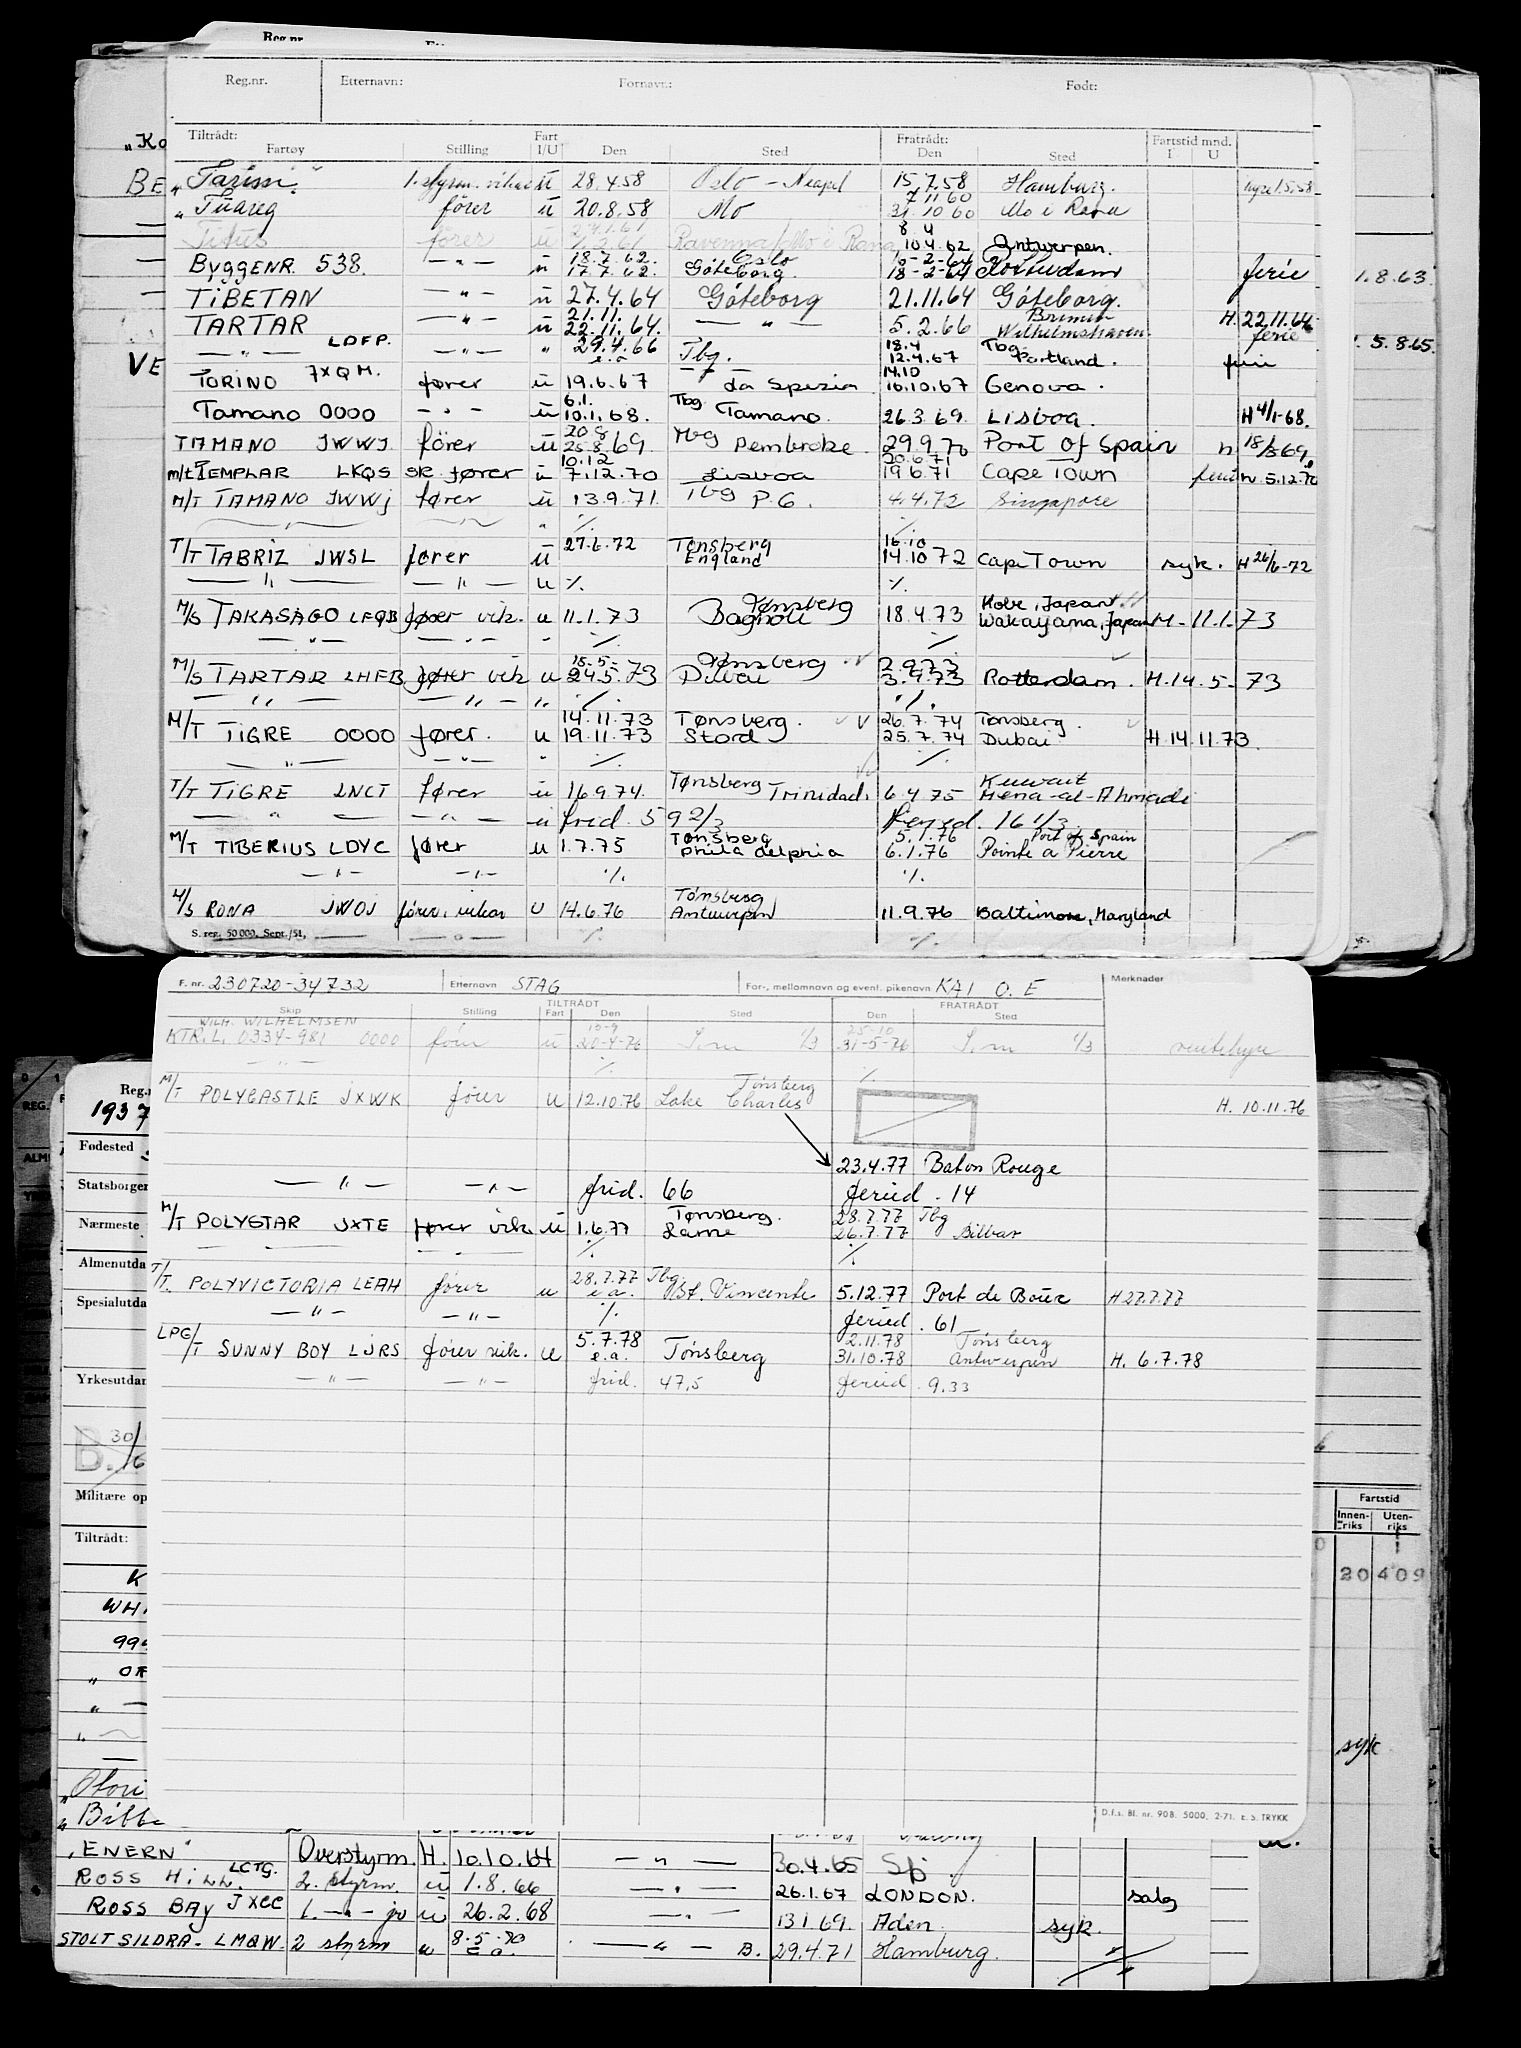 Reg.nr.
Reg.nr. Etternavn: Fornavn: Født:
Tiltrådt: Fratrådt: Fartstid mnd.
Fartøy Stilling Fart I/U Den Sted Den Sted I U
"Ko
"Tarim" 1. styrm. vikar ū 28.4.58 Oslo - Neapel 15.7.58 Hamburg.
BE
" Tuareg fører ū 20.8.58 Mo 7.11.60 31.10.60 Mo i Rana
Titus fører ū Ravenna/Mo i Rana 8.4 10.4.62 Antwerpen.
BYGGENR. 538. — " — ū 18.7.62. 17.7.62. Oslo Göteborg. 18-2-64 Rotterdam ferie 1.8.63.
TIBETAN — " — ū 27.4.64 Göteborg 21.11.64 Göteborg.
TARTAR — " — ū 21.11. 22.11.64. — " — 5.2.66 Bremen Wilhelmshaven. H. 22.11.64 ferie
— " — LDFP. — " — " 29.4.66 e.a Tbg. 18.4 12.4.67 Tbg. Portland. ferie 5.8.65.
VE
TORINO JXQM. fører ū 19.6.67 La Spezia 14.10 16.10.67 Genova.
Tamano 0000 — " — ū 6.1. 10.1.68. Tbg Tamano. 26.3.69. Lisboa H 4/1-68.
TAMANO JWWJ. fører ū 20.8 25.8.69. Tbg Pembroke. 29.9.70 Port of Spain H 18/8 69
M/T TEMPLAR LKQS sk. fører ū 10.12 7.12.70 Lisboa 20.6.71 19.6.71 Cape Town ferie H. 5.12.70
M/T TAMANO JWWJ fører ū 13.9.71. Tbg P.G. 4.4.72 Singapore
" ./. ./.
T/T TABRIZ JWSL fører ū 27.6.72 Tønsberg England 16.10 14.10 72 Cape Town syk. H 26/6-72
— " — — " — u ./. ./.
M/S TAKASAGO LFQB fører vik. u 11.1.73 Tønsberg Bagnoli 18.4.73 Kobe, Japan Wakayama, Japan M - 11.1.73
— " — — " — ./. ./.
M/S TARTAR LHFB fører vik u 18.5.- 24.5.73 Tønsberg Dubai 2.9.73 3.9.73 Rotterdam. H.14.5-73
— " — — " — " ./. ./.
M/T TIGRE 0000 fører. u 14.11.73 19.11.73 Tønsberg. Stord 26.7.74 25.7.74 Tønsberg. Dubai H.14.11.73.
— " — — " — " ./. ./.
T/T TIGRE LNCT fører ū 16.9.74. Tønsberg Trinidad. 6.4.75 Kuwait Mena-al-Ahmadi
— " — — " — ū frid. 59 2/3 feried. 16 1/3
M/T TIBERIUS LDYC fører u 1.7.75 Tønsberg Philadelphia 5.1.76 6.1.76 Port of Spain Pointe a Pierre
— " — — " — ./. ./.
M/S RONA JWOJ fører, vikar U 14.6.76 Tønsberg Antwerpen 11.9.76 Baltimore, Maryland
S. reg. 50 000. Sept./51. — " — ./. ./.
F. nr. 230720-34732 Etternavn STAG For-, mellomnavn og event. pikenavn KAI O. E Merknader
TILTRÅDT FRATRÅDT
Skip Stilling Fart Den Sted Den Sted
WILH. WILHELMSEN
KTR.L. 0334-981 0000 fører ū 20-4-76 1/3 25-10 31-5-76 1/3
— " — ./. ./.
M/T POLYCASTLE JXWK fører u 12.10.76 Tønsberg Lake Charles H. 10.11.76
23.4.77 Baton Rouge
— " — — " — frid. 66 feried. 14
M/T POLYSTAR JXTE fører vik. ū 1.6.77 Tønsberg. Larne 28.7.77 26.7.77 Tbg Bilbao
— " — — " — ./. ./.
T/T. POLYVICTORIA LEAH fører u 28.7.77 e.a. Tbg. St. Vincente 5.12.77 Port de Bouc H 27.7.77
— " — — " — ./. feried. 61
LPG/T SUNNY BOY LJRS fører vik. u 5.7.78 e.a. Tønsberg 2.11.78 31.10.78 Tønsberg Antwerpen H. 6.7.78
— " — — " — frid. 47,5 feried. 9.33
D.f.s. Bl. nr. 908. 5000, 2-71. E. S. TRYKK
REG.
Reg.n
1937
Fødested
ALM
Statsborger
Nærmeste
Almenutda
Spesialutda
Yrkesutdan
B. 30/
Militære op
Tiltrådt:
K
WH
99
" OR
"Otori
" Bibb
Fartstid
Innenriks Utenriks
20 409
syk
"ENERN" Overstyrm. H. 10.10.64 — " — 30.4.65 Sp.
ROSS HILL LCTG. 2. styrm. ū 1.8.66 — " — 26.1.67 LONDON. salg
ROSS BAY JXCC 1. — " — jr ū 26.2.68 — " — 13.1.69. Aden. syk.
STOLT SILDRA - LMQW. 2 styrm u 8.5.70 e.a. — " — B. 29.4.71 Hamburg.